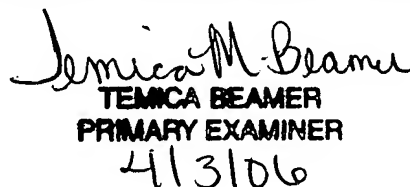 Temica M. Beamer
TEMICA BEAMER
PRIMARY EXAMINER
4/3/06